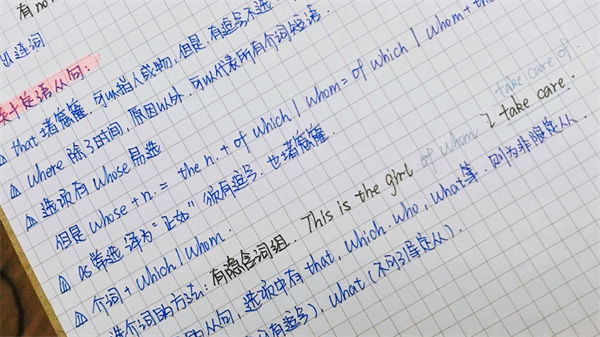 以连词
关于定语从句:
△ that 堵窟窿. 可以指人或物, 但是, 有逗号不选
△ where 除了时间, 原因以外. 可以代表所有介词短语.
△ 选项有 whose 易选
但是 whose + n. = the n. + of which / whom = of which / whom + the
△ as 常选. 译为"正如" 须有逗号. 也堵窟窿.
△ 介词 + which / whom.
选介词的方法: 有隐含词组. This is the girl of whom I take care. take care of.
的从句, 选项中有 that, which. who, what等. 则为非限定从.
有逗号), what (不引导定从).